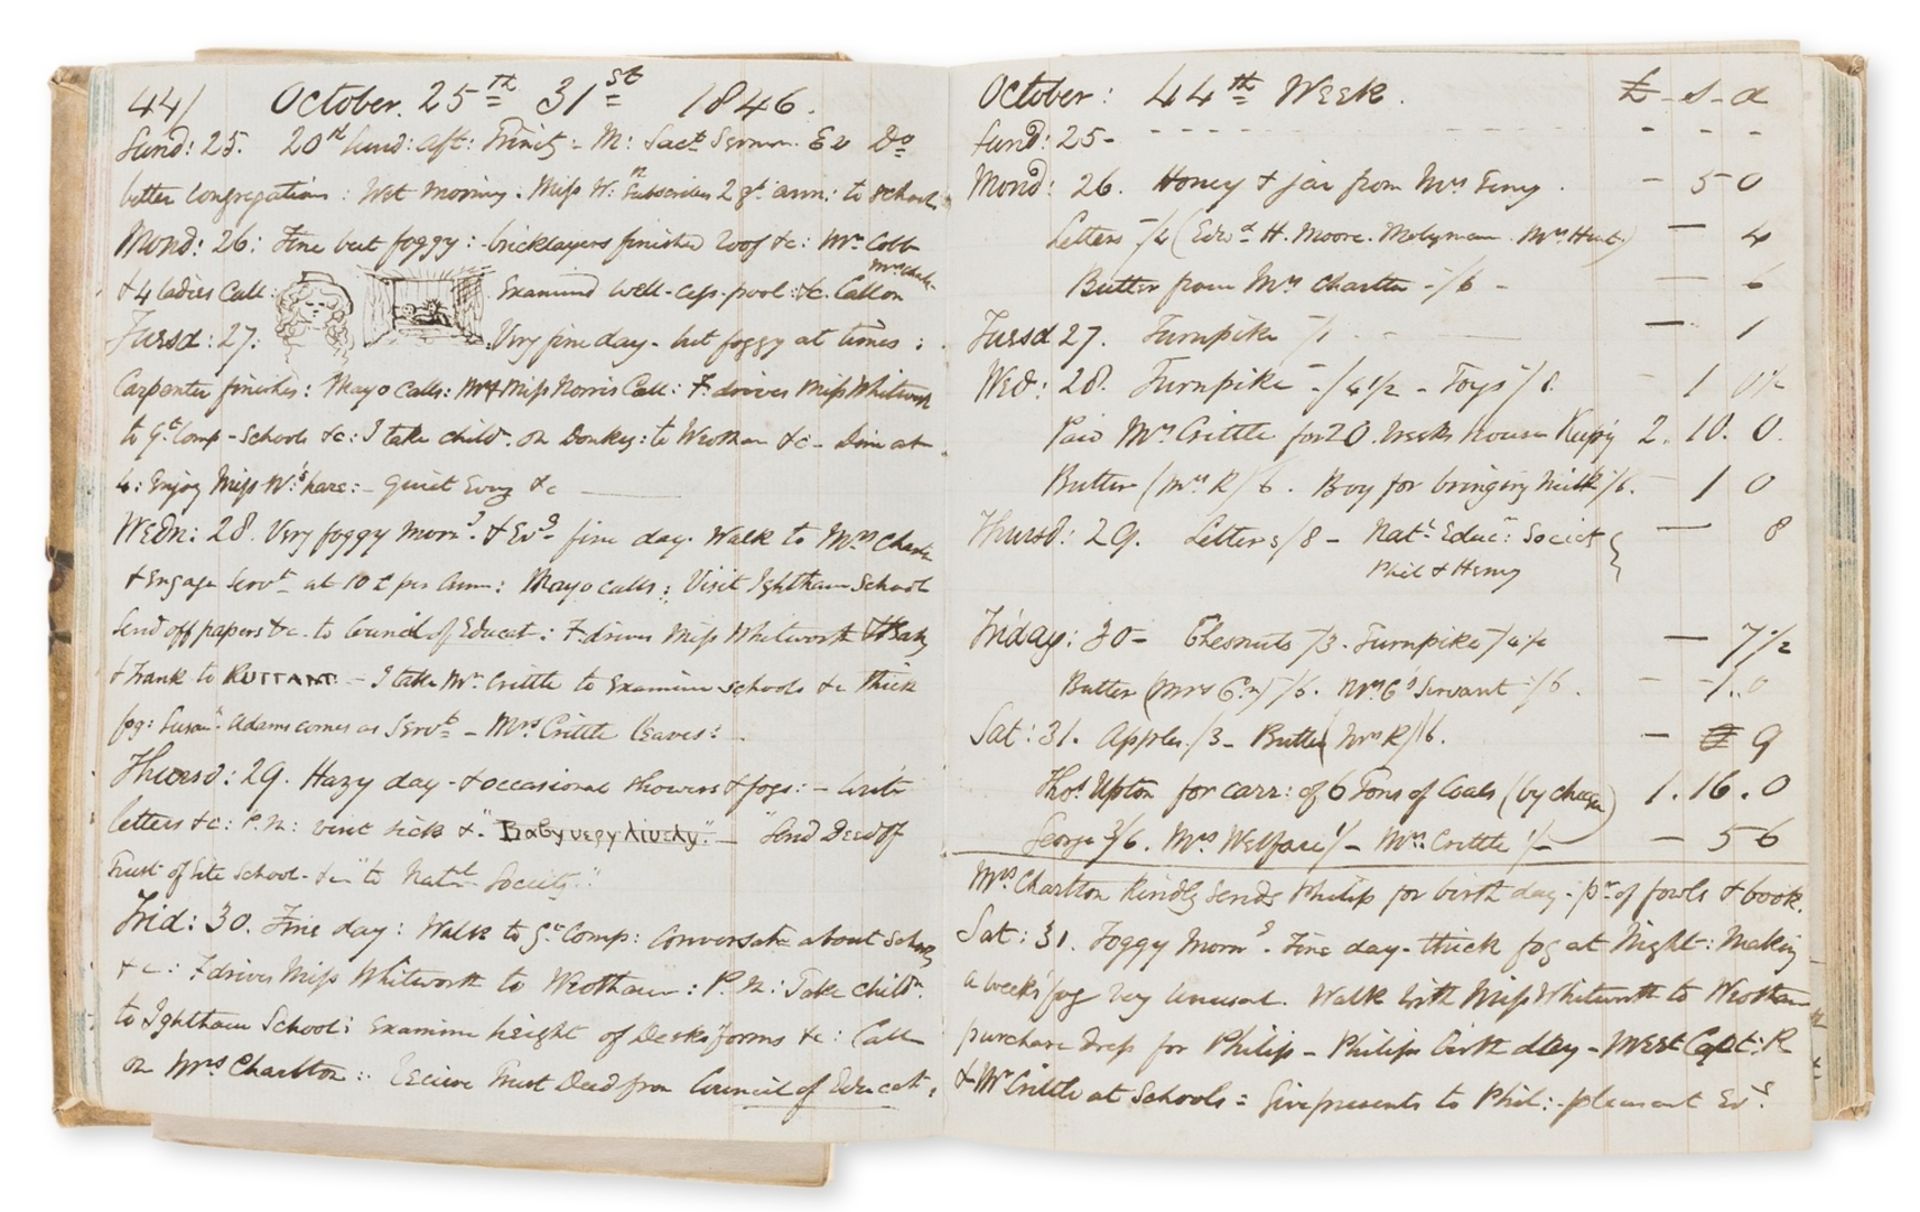 44/ October. 25th 31st 1846.
Sund: 25. 20th Sund: aft: Trinity - M: Sact Sermon. Ev Do
better congregations: Wet morning. Miss W: Subscribes 2 gs ann: to school
Mond: 26: Fine but foggy: bricklayers finished roof &c: Mrs Cobb
& 4 ladies Call: Examined well - cess-pool: &c. Call on Mrs Charl
Tuesd: 27: Very fine day - but foggy at times:
Carpenter finishes: Mayo calls: Mr & Miss Norris Call: F. drives Miss Whitworth
to Gt Comp - Schools &c: I take childn on Donkey: to Wrotham &c - Dine at
4: Enjoy Miss W:'s hare: - quiet Evng &c
Wedn: 28. Very foggy morng & Evg fine day. Walk to Mrs Charl
& Engage Servt at 10 £ per Ann: Mayo calls: Visit Ightham School
Send off papers &c. to Council of Educat: F. drives Miss Whitworth & Baby
& Frank to - I take Mr Crittle to Examine schools &c thick
fog: Susan Adams comes as Servt - Mrs Crittle leaves:
Thursd: 29. Hazy day - & occasional showers & fogs: - write
letters &c: P.N: visit sick & "Baby very lively." - "Send Deed of
Trust of Site School - &c" to Natl Society."
Frid: 30. Fine day: Walk to Gt Comp: Conversatn about Schools
&c: F drives Miss Whitworth to Wrotham: P.N: Take childn
to Ightham School: Examine height of Desks forms &c: Call
on Mrs Charlton: Receive Trust Deed from Council of Educat:
October: 44th Week. £ - s - d
Sund: 25 - - - -
Mond: 26. Honey & jar from Mrs - 5 0
Letters -/4 (Edwd H. Moore. Molyneux. Mrs ) - 4
Butter from Mrs Charlton -/6 - - 6
Tuesd 27. Turnpike -/1 - 1
Wed: 28. Turnpike -/4 1/2 - Toys /8 - 1 0 1/2
Paid Mrs Crittle for 20 weeks house Keepg 2. 10. 0.
Butter (Mrs R) /6. Boy for bringing milk /6. - 1 0
Thursd: 29. Letters /8 - Natl Educn: Society } - 8
Phil & Henry
Friday: 30 - Chesnuts -/3. Turnpike -/4 1/2 - 7 1/2
Butter (Mrs Cn) -/6. Mrs C's Servant -/6. - 1. 0
Sat: 31. Apples /3 - Butter (Mrs R) /6. - 9
Thos Upton for carr: of 6 Tons of Coals (by cheque) 1. 16. 0
George 3/6. Mrs Welfare 1/- Mrs Crittle 1/- - 5 6
Mrs Charlton kindly sends Philip for birth day - pr of fowls & book.
Sat: 31. Foggy Morng. Fine day - thick fog at Night: Making
a weeks fog very unusual. Walk with Miss Whitworth to Wrotham
purchase dress for Philip - Philips birth day - Meet Capt: R
& Mr Crittle at Schools = Give presents to Phil: - pleasant Evg.